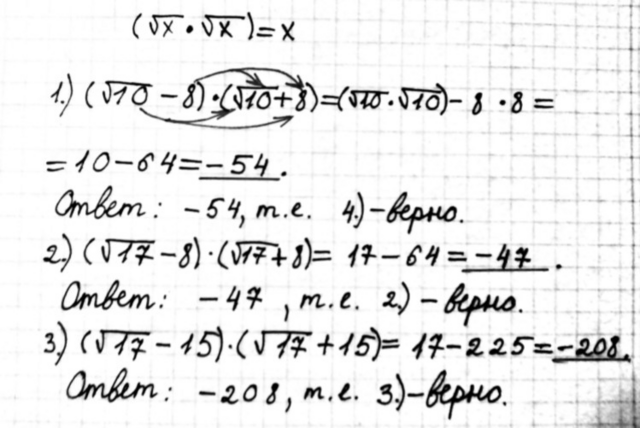 (√x · √x) = x
1.) (√10 – 8) · (√10 + 8) = (√10 · √10) – 8 · 8 =
= 10 – 64 = – 54.
Ответ: – 54, т.е. 4.) – верно.
2.) (√17 – 8) · (√17 + 8) = 17 – 64 = – 47.
Ответ: – 47, т.е. 2.) – верно.
3.) (√17 – 15) · (√17 + 15) = 17 – 225 = – 208.
Ответ: – 208, т.е. 3.) – верно.